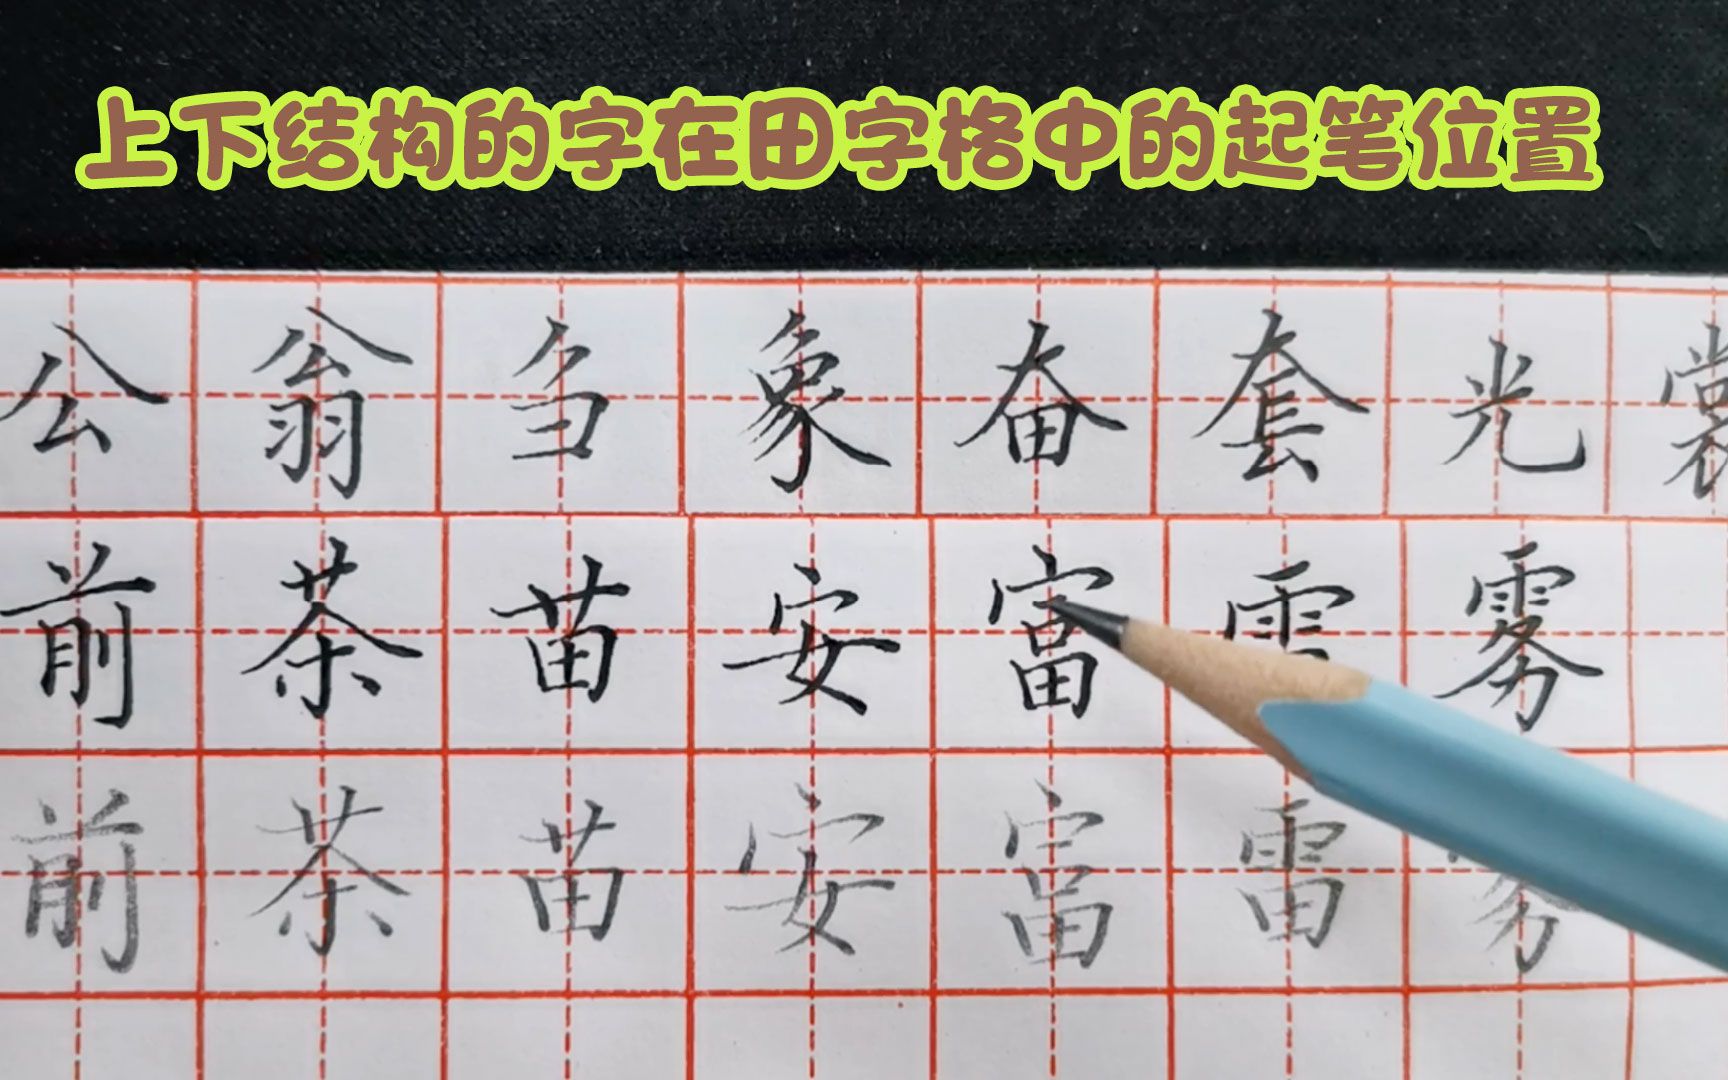 上下结构的字在田字格中的起笔位置
公 翁 刍 象 奋 套 光 裳
前 茶 苗 安 富 雷 雾
前 茶 苗 安 富 雷 雾